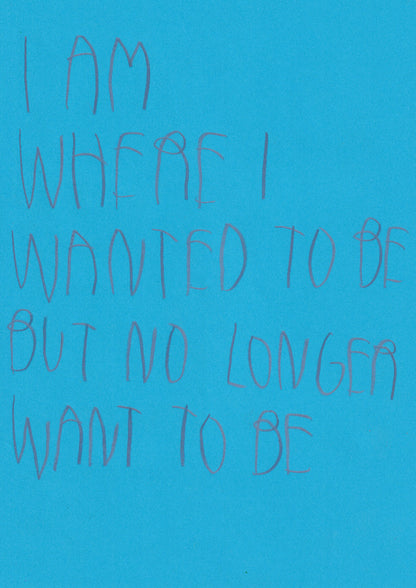 I AM
WHERE I
WANTED TO BE
BUT NO LONGER
WANT TO BE